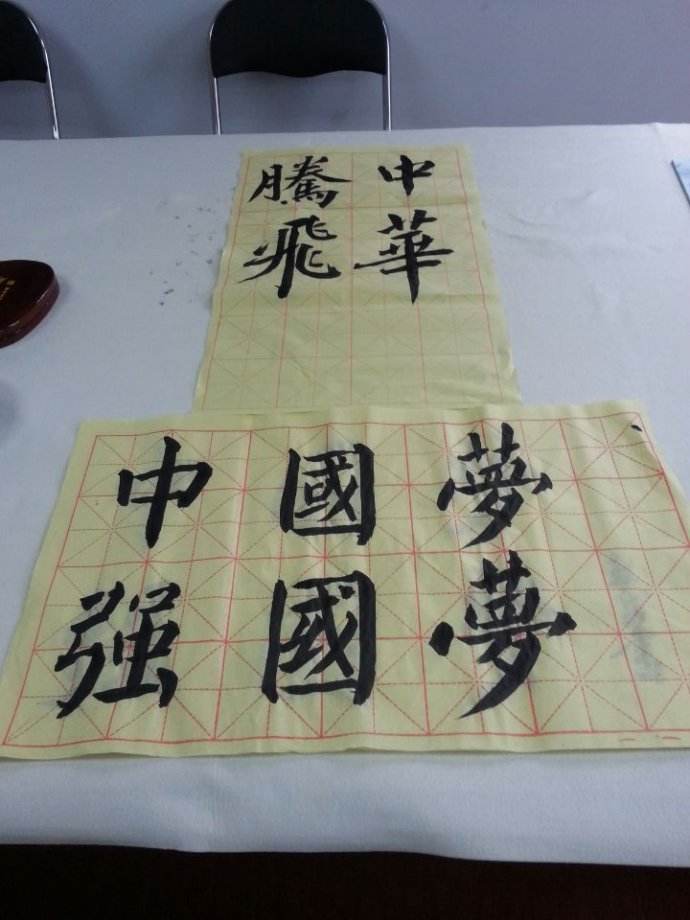 中華
騰飛
中國夢
强國夢